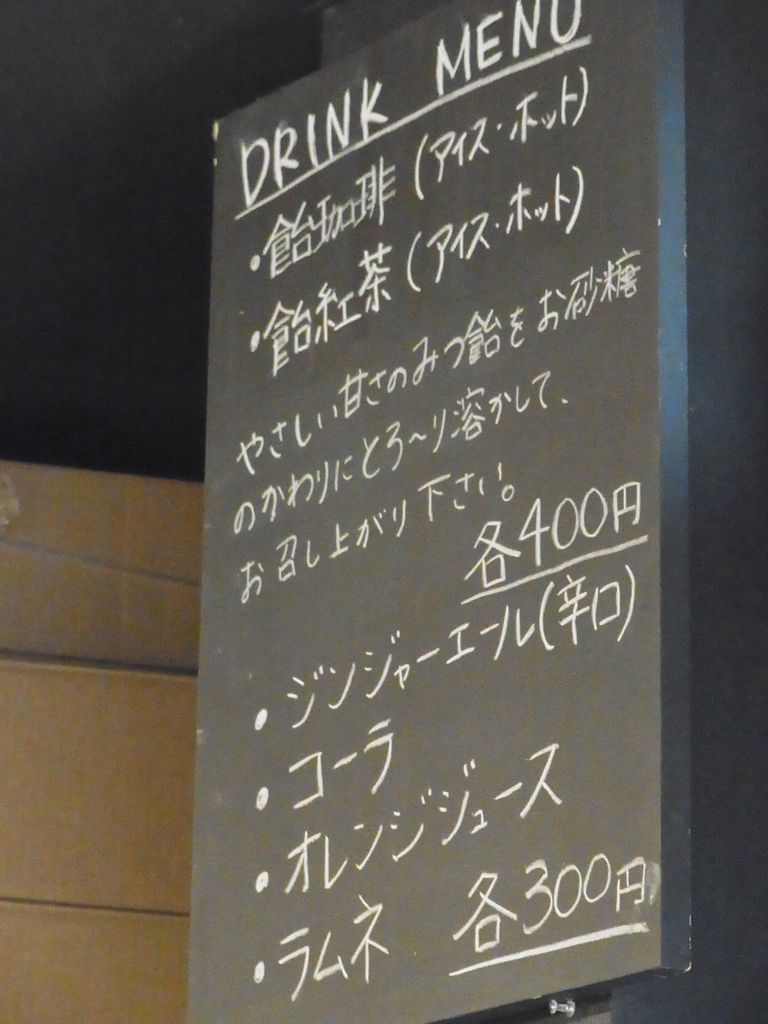 DRINK MENU
・飴珈琲(アイス・ホット)
・飴紅茶(アイス・ホット)
やさしい甘さのみつ飴をお砂糖
のかわりにとろ〜り溶かして、
お召し上がり下さい。
各400円
・ジンジャーエール(辛口)
・コーラ
・オレンジジュース
・ラムネ 各300円